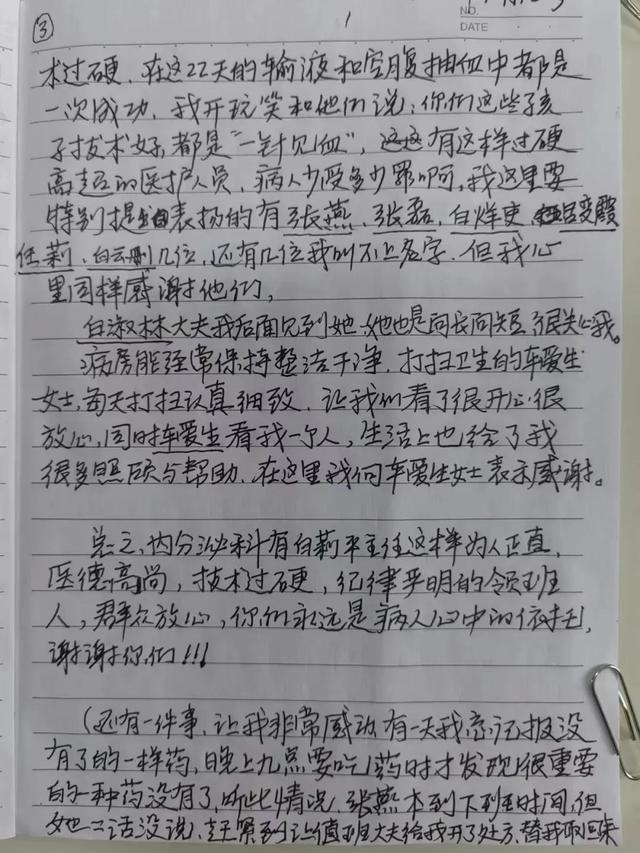 ③
NO.
DATE
术过硬，在这22天的输液和空腹抽血中都是
一次成功，我开玩笑和他们说：你们这些孩
子技术好，都是"一针见血"，有这样过硬
高超的医护人员，病人少受多少罪啊，我这里要
特别提出表扬的有张燕、张磊、白烨吏、
任莉、白云刚几位，还有几位我叫不上名字，但我心
里同样感谢他们，
白淑林大夫我后面见到她，她也是问长问短，很关心我。
病房能经常保持整洁干净，打扫卫生的车爱生
女士，每天打扫认真细致，让我们看了很开心很
放心，同时车爱生看我一个人，生活上也给了我
很多照顾与帮助，在这里我向车爱生女士表示感谢。
总之，内分泌科有白莉平主任这样为人正直，
医德高尚，技术过硬，纪律严明的领班
人，群众放心，你们永远是病人心中的依托，
谢谢你们!!!
(还有一件事，让我非常感动，有一天我忘记报没
有了的一样药，晚上九点要吃药时才发现很重要
的一种药没有了，听此情况，张燕本到下班时间，但
她二话没说，赶紧到让值班大夫给我开了处方，替我取回来